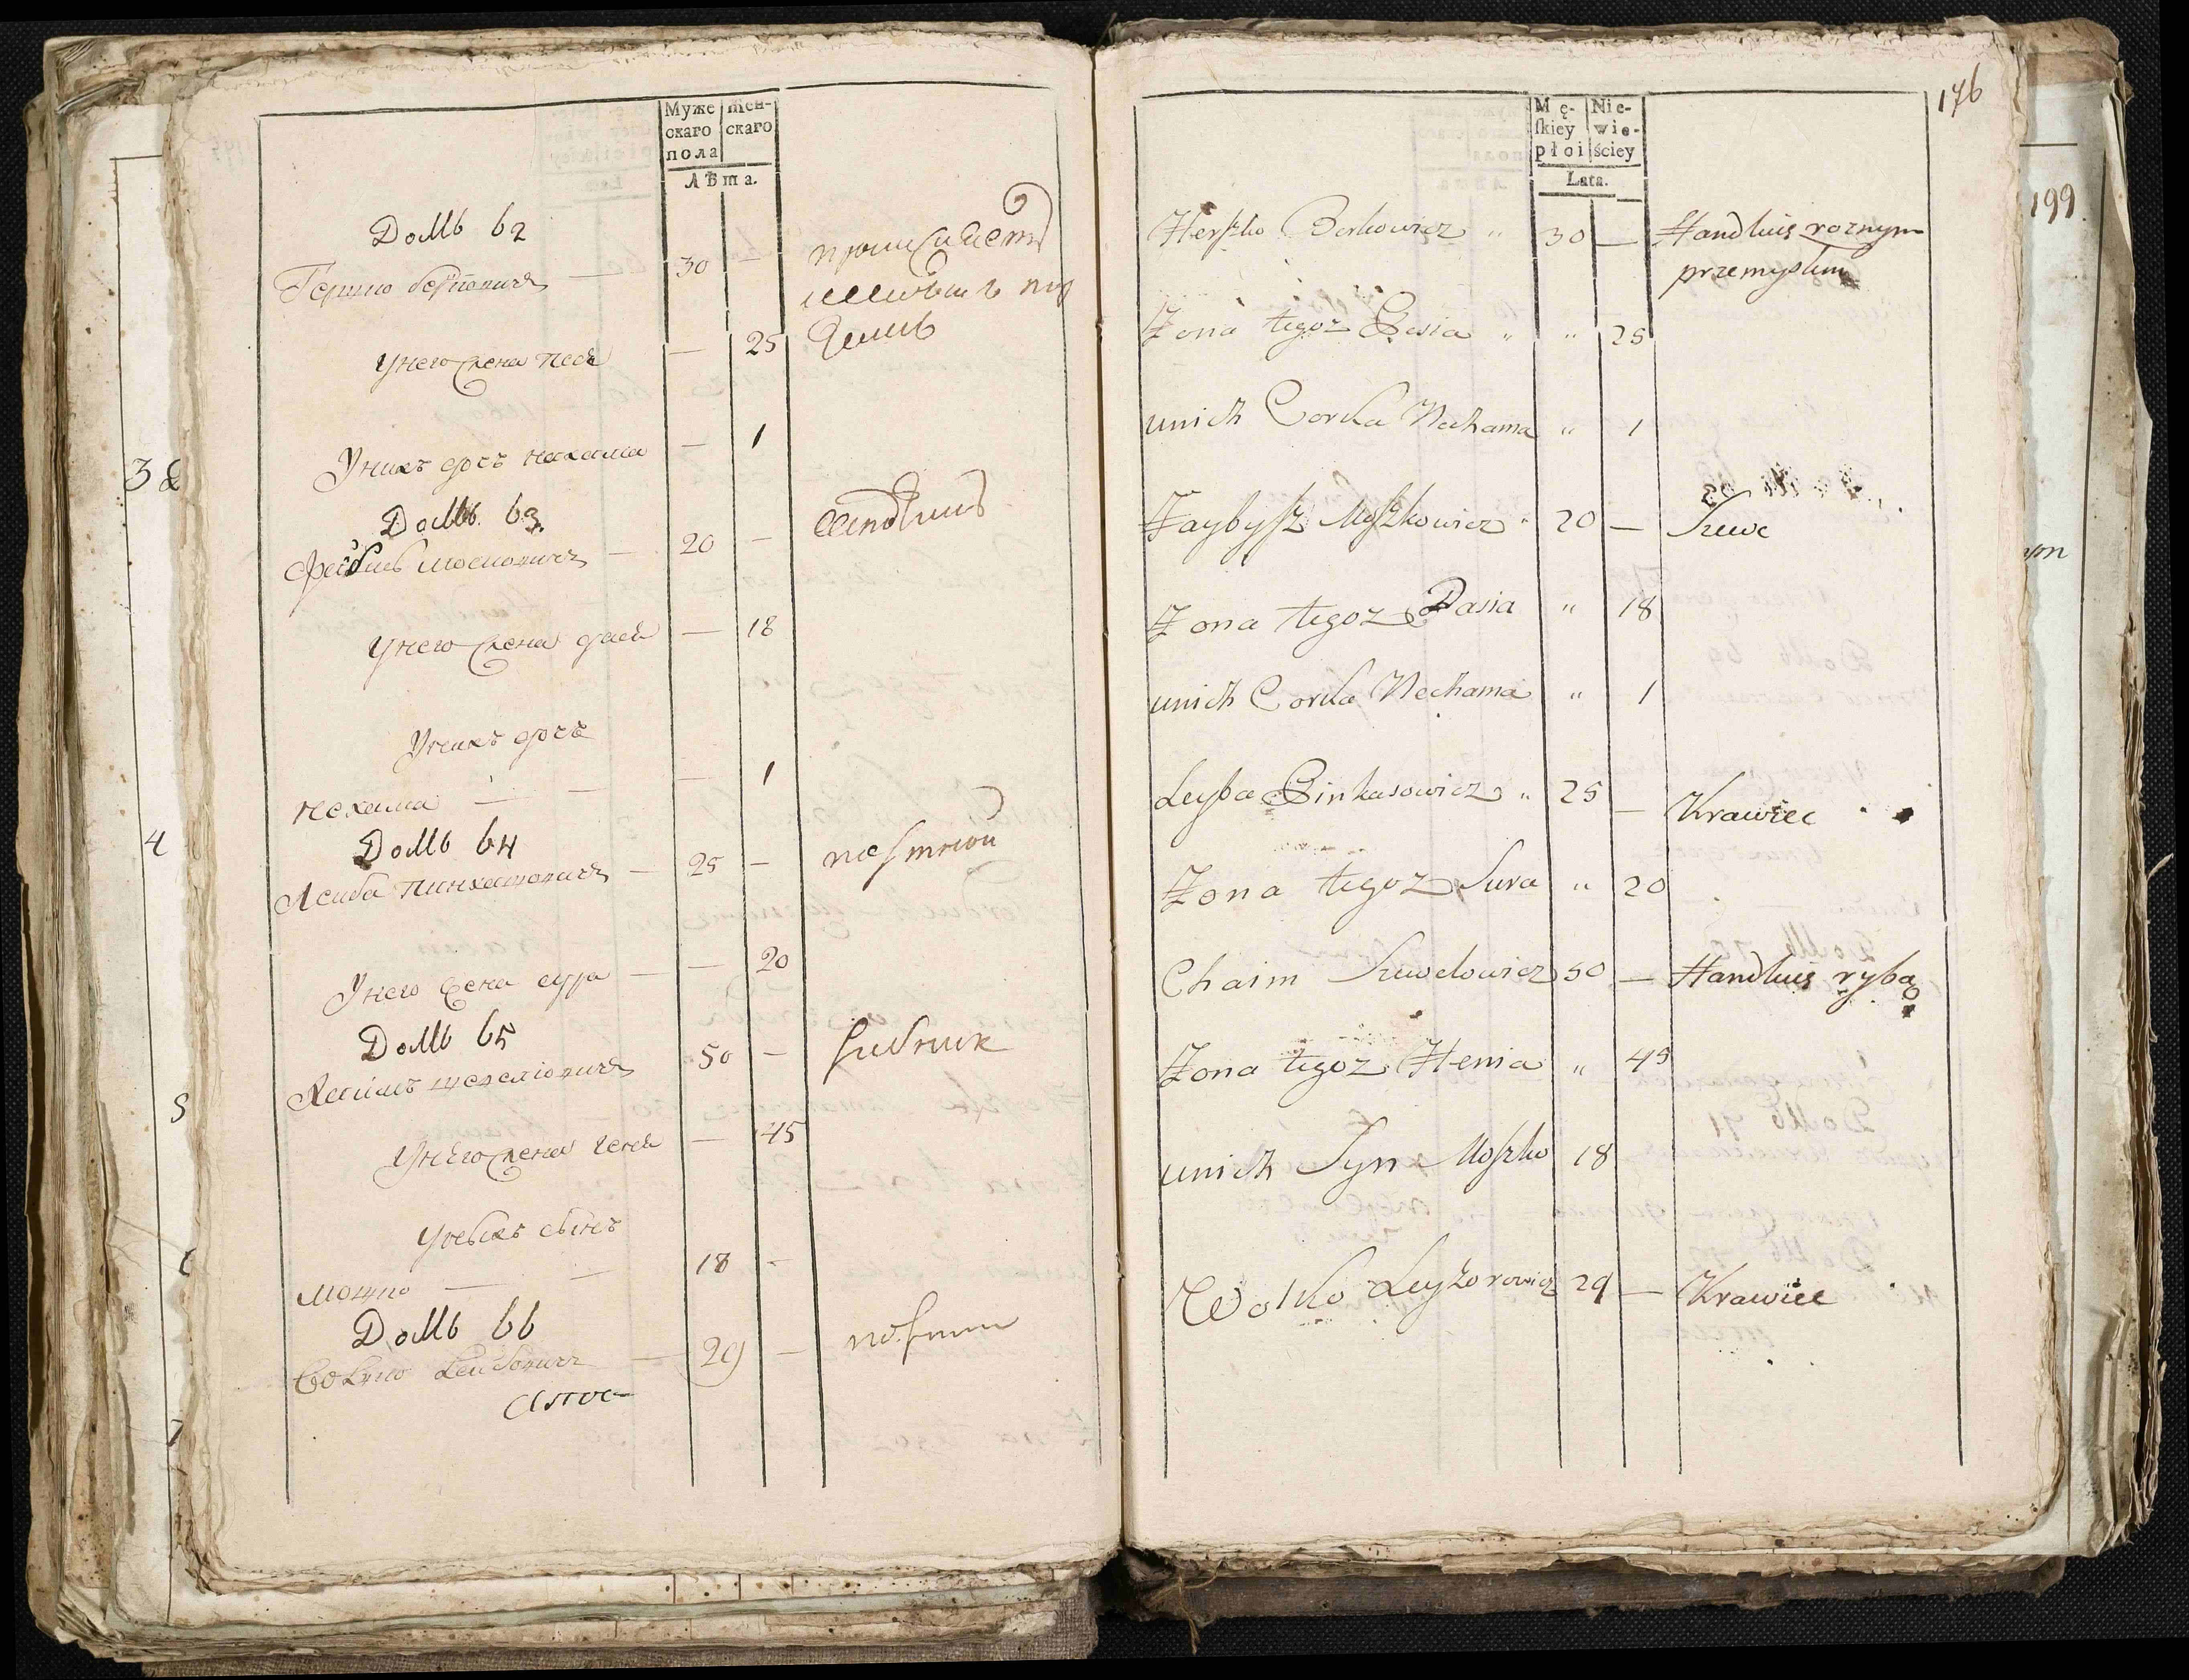 Муже
скаго
пола
жен-
скаго
Лѣта.
Домъ 62
Гершко Берковичъ — 30 —
Унего жена Песя — 25
Унихъ дочь Нехама — 1
Домъ 63.
Фейбишъ Московичъ — 20 —
Унего жена Дася — 18
Унихъ дочь
Нехама — — — 1
Домъ 64
Лейба Пинхасовичъ — 25 — портной
Унего жена Сура — — 20
Домъ 65
Хаимъ 50 — рибник
Унего жена Геня — 45
Унихъ сынъ
Мошко — — 18 -
Домъ 66
Волко — 29 —
176
Mę-
skiey
płci
Nie-
wie-
ściey
Lata.
Herszko Berkowicz " 30 — Handluię roznym
przemysłem
Zona tegoz Pesia " " 25
unich Corka Nechama " 1
Faybysz Moszkowicz " 20 — Szewc
Zona tegoz Dasia " 18
unich Corka Nechama " 1
Leyba Pinkasowicz " 25 — Krawiec
Zona tegoz Sura " 20
Chaim Szewelowicz 50 — Handluię rybą
Zona tegoz Henia " 45
unich Syn Moszko 18
Wolko Leyzorowicz 29 — Krawiec
199
ym
3
4
5
7